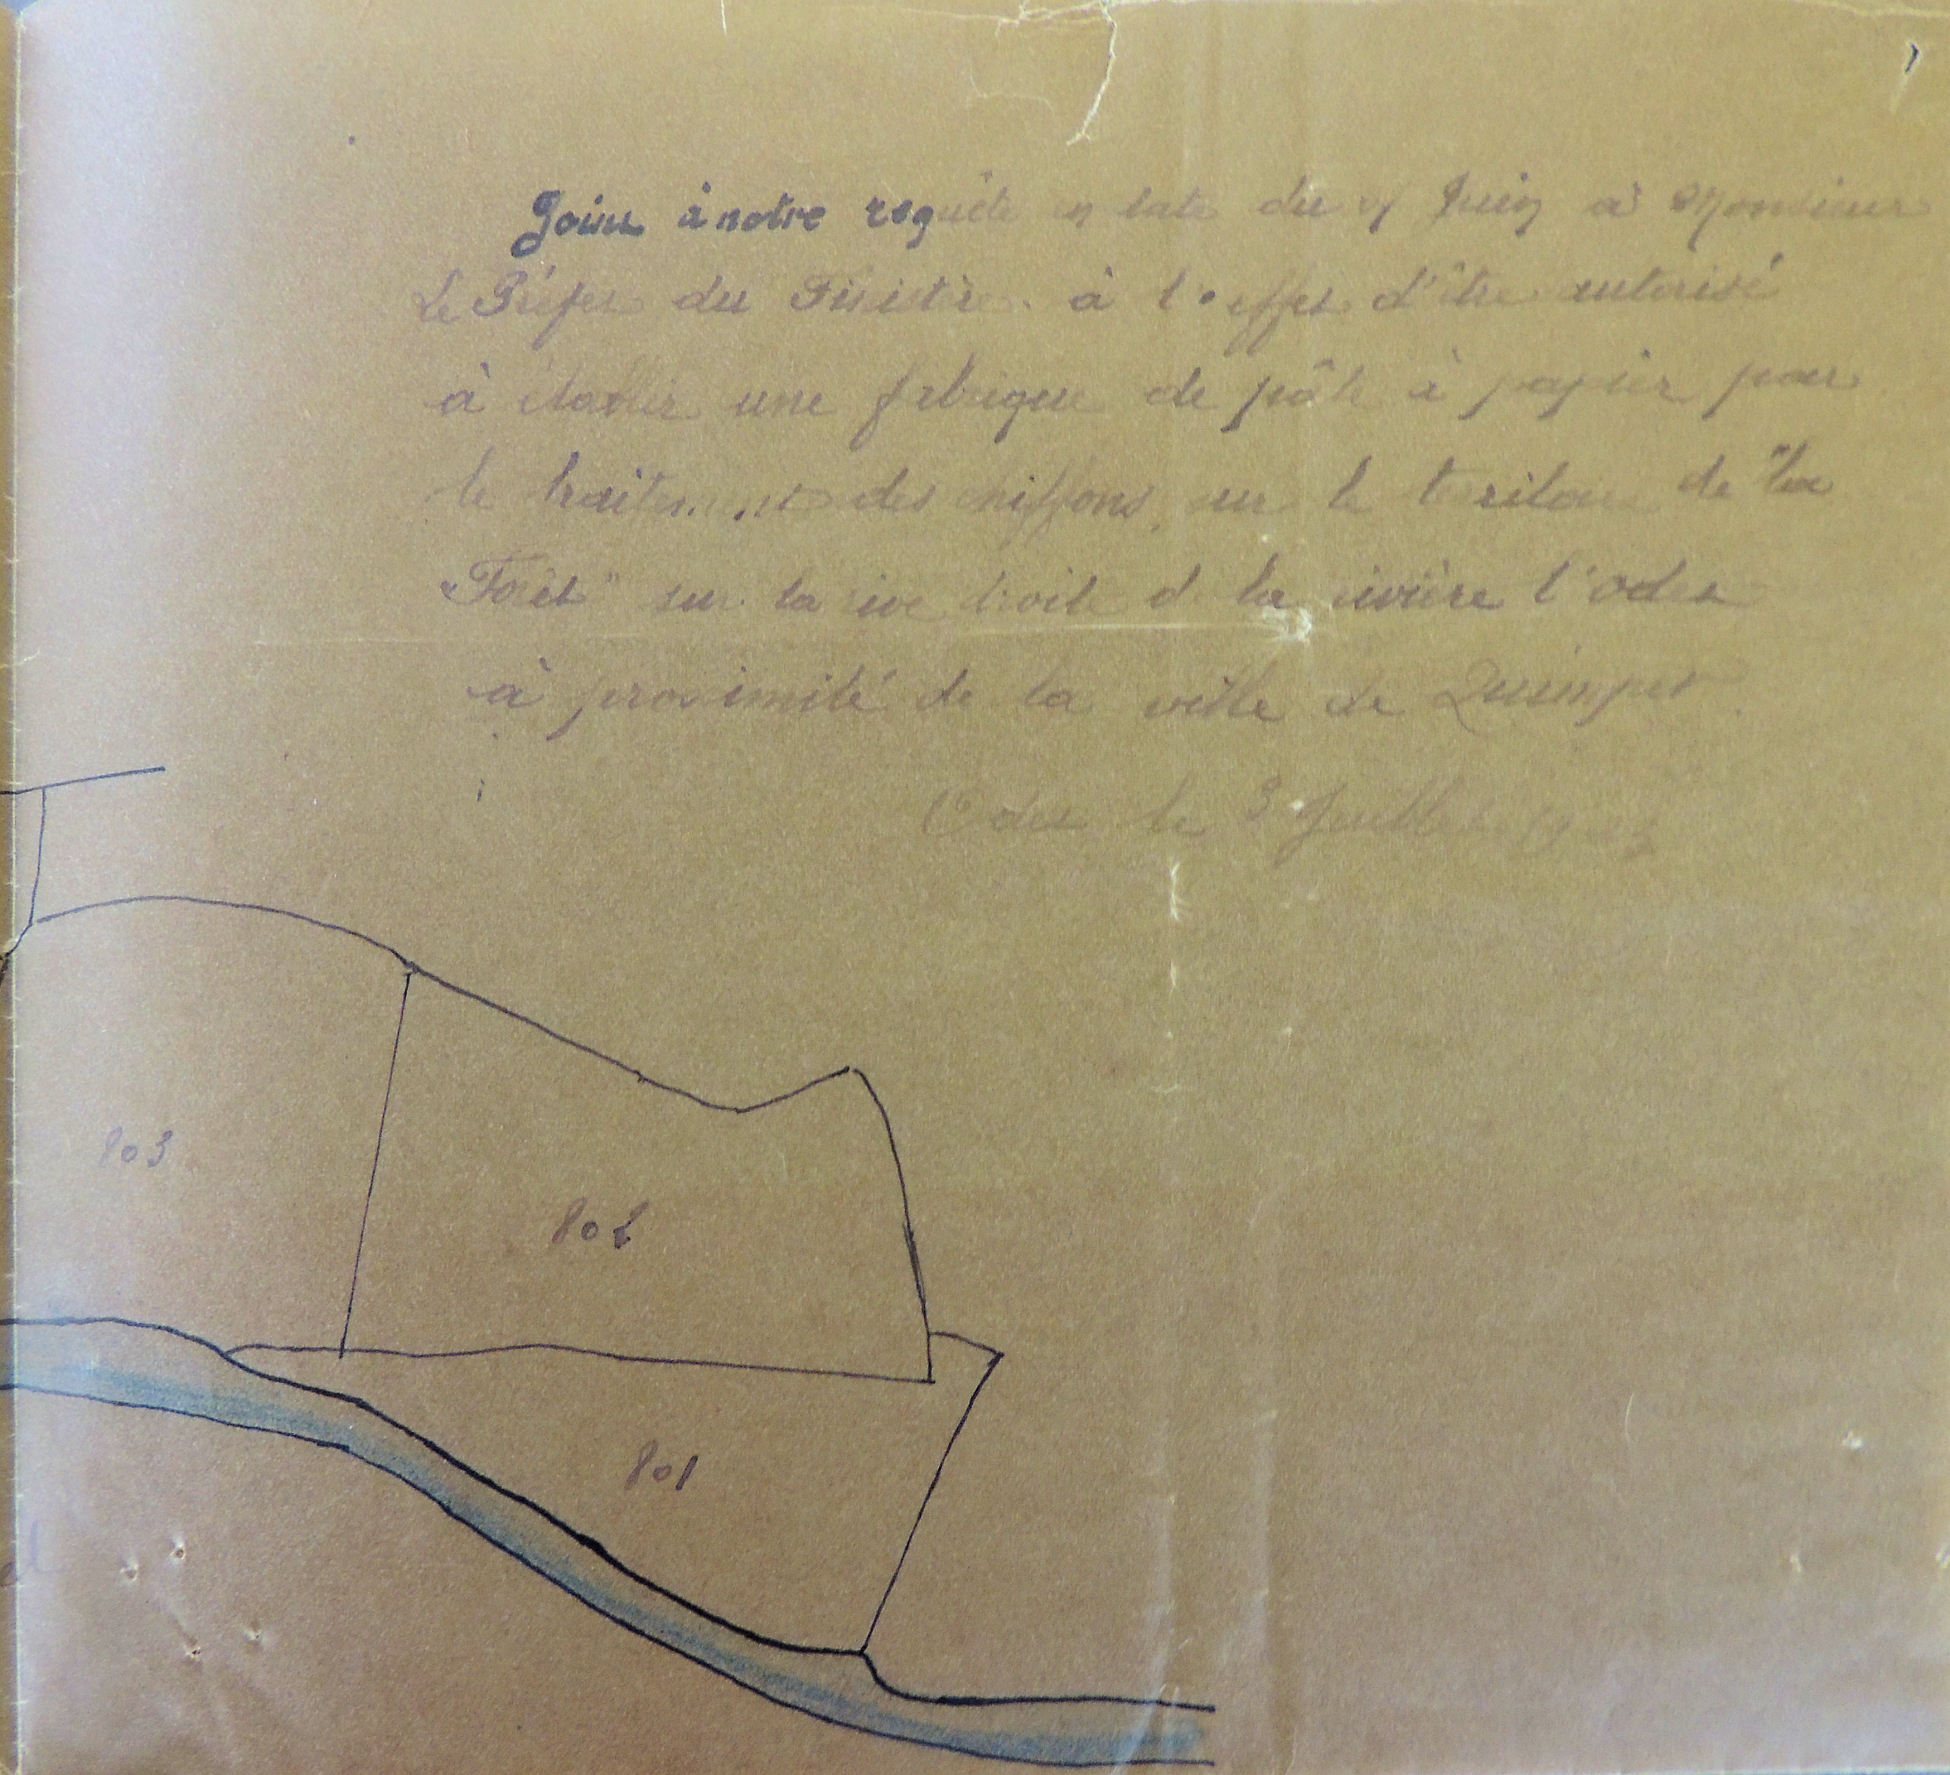 Joins à notre requête en date du Juin à Monsieur
Le Préfet du Finistère à l'effet d'être autorisé
à établir une fabrique de pâte à papier par
le traitement des chiffons, sur le teritoire de "la
"Forêt" sur la rive droite de la rivière l'Odet
à proximité de la ville de Quimper.
Odet le 3 Juillet
803
802
801